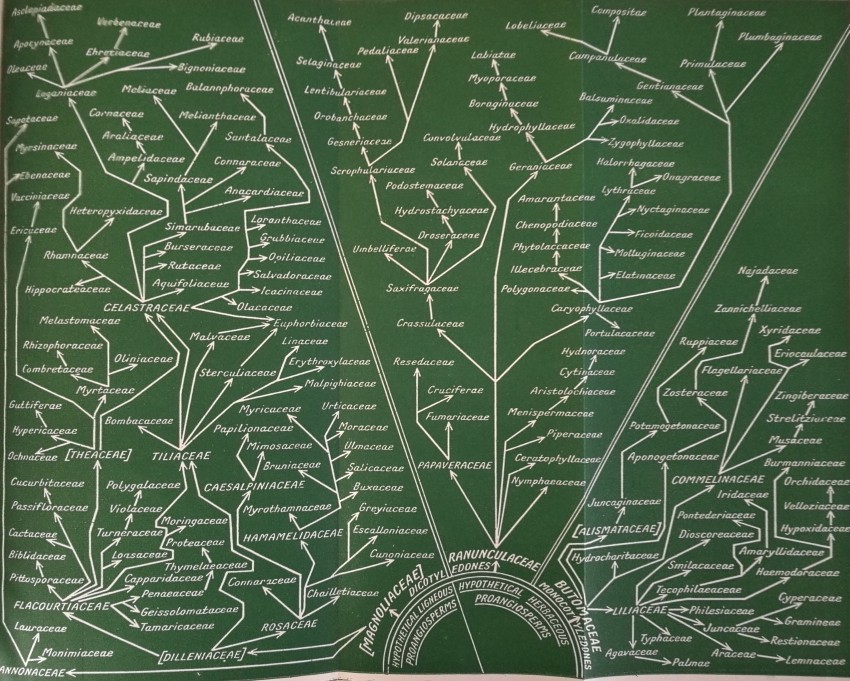 Asclepiadaceae
Verbenaceae
Apocynaceae
Ehretiaceae
Rubiaceae
Oleaceae
Bignoniaceae
Loganiaceae
Meliaceae
Balannphoraceae
Sapotaceae
Cornaceae
Melianthaceae
Araliaceae
Santalaceae
Myrsinaceae
Ampelidaceae
Connaraceae
Ebenaceae
Sapindaceae
Anacardiaceae
Vacciniaceae
Heteropyxidaceae
Simarubaceae
Loranthaceae
Ericaceae
Burseraceae
Grubbiaceae
Rhamnaceae
Rutaceae
Opiliaceae
Salvadoraceae
Hippocrateaceae
Aquifoliaceae
Icacinaceae
CELASTRACEAE
Olacaceae
Melastomaceae
Malvaceae
Euphorbiaceae
Rhizophoraceae
Linaceae
Oliniaceae
Erythroxylaceae
Combretaceae
Sterculiaceae
Malpighiaceae
Myrtaceae
Guttiferae
Myricaceae
Urticaceae
Bombacaceae
Papilionaceae
Moraceae
Hypericaceae
Mimosaceae
Ulmaceae
Ochnaceae
[THEACEAE]
TILIACEAE
Bruniaceae
Salicaceae
Cucurbitaceae
Polygalaceae
CAESALPINIACEAE
Buxaceae
Passifloraceae
Violaceae
Myrothamnaceae
Greyiaceae
Moringaceae
Cactaceae
Turneraceae
HAMAMELIDACEAE
Escalloniaceae
Proteaceae
Biblidaceae
Loasaceae
Cunoniaceae
Thymelaeaceae
Pittosporaceae
Capparidaceae
Connaraceae
Penaeaceae
Chailletiaceae
FLACOURTIACEAE
Geissolomataceae
Tamaricaceae
ROSACEAE
Lauraceae
Monimiaceae
[DILLENIACEAE]
ANNONACEAE
[MAGNOLIACEAE]
Acanthaceae
Dipsacaceae
Lobeliaceae
Compositae
Plantaginaceae
Valerianaceae
Pedaliaceae
Plumbaginaceae
Selaginaceae
Labiatae
Campanulaceae
Primulaceae
Lentibulariaceae
Myoporaceae
Gentianaceae
Orobanchaceae
Boraginaceae
Balsaminaceae
Oxalidaceae
Gesneriaceae
Convolvulaceae
Hydrophyllaceae
Zygophyllaceae
Scrophulariaceae
Solanaceae
Geraniaceae
Halorrhagaceae
Onagraceae
Podostemaceae
Lythraceae
Amarantaceae
Hydrostachyaceae
Nyctaginaceae
Chenopodiaceae
Droseraceae
Ficoidaceae
Umbelliferae
Phytolaccaceae
Molluginaceae
Illecebraceae
Elatinaceae
Saxifragaceae
Polygonaceae
Caryophyllaceae
Crassulaceae
Portulacaceae
Hydnoraceae
Resedaceae
Cytinaceae
Cruciferae
Aristolochiaceae
Fumariaceae
Menispermaceae
Piperaceae
PAPAVERACEAE
Ceratophyllaceae
Nymphaeaceae
RANUNCULACEAE
DICOTYLEDONES
HYPOTHETICAL LIGNEOUS
PROANGIOSPERMS
HYPOTHETICAL HERBACEOUS
PROANGIOSPERMS
MONOCOTYLEDONES
BUTOMACEAE
Najadaceae
Zannichelliaceae
Xyridaceae
Ruppiaceae
Eriocaulaceae
Flagellariaceae
Zosteraceae
Zingiberaceae
Strelitziaceae
Potamogetonaceae
Musaceae
Aponogetonaceae
Burmanniaceae
COMMELINACEAE
Orchidaceae
Iridaceae
Juncaginaceae
Velloziaceae
Pontederiaceae
[ALISMATACEAE]
Hypoxidaceae
Dioscoreaceae
Hydrocharitaceae
Amaryllidaceae
Smilacaceae
Haemodoraceae
Tecophilaeaceae
Cyperaceae
LILIACEAE
Philesiaceae
Gramineae
Juncaceae
Typhaceae
Restionaceae
Agavaceae
Araceae
Palmae
Lemnaceae